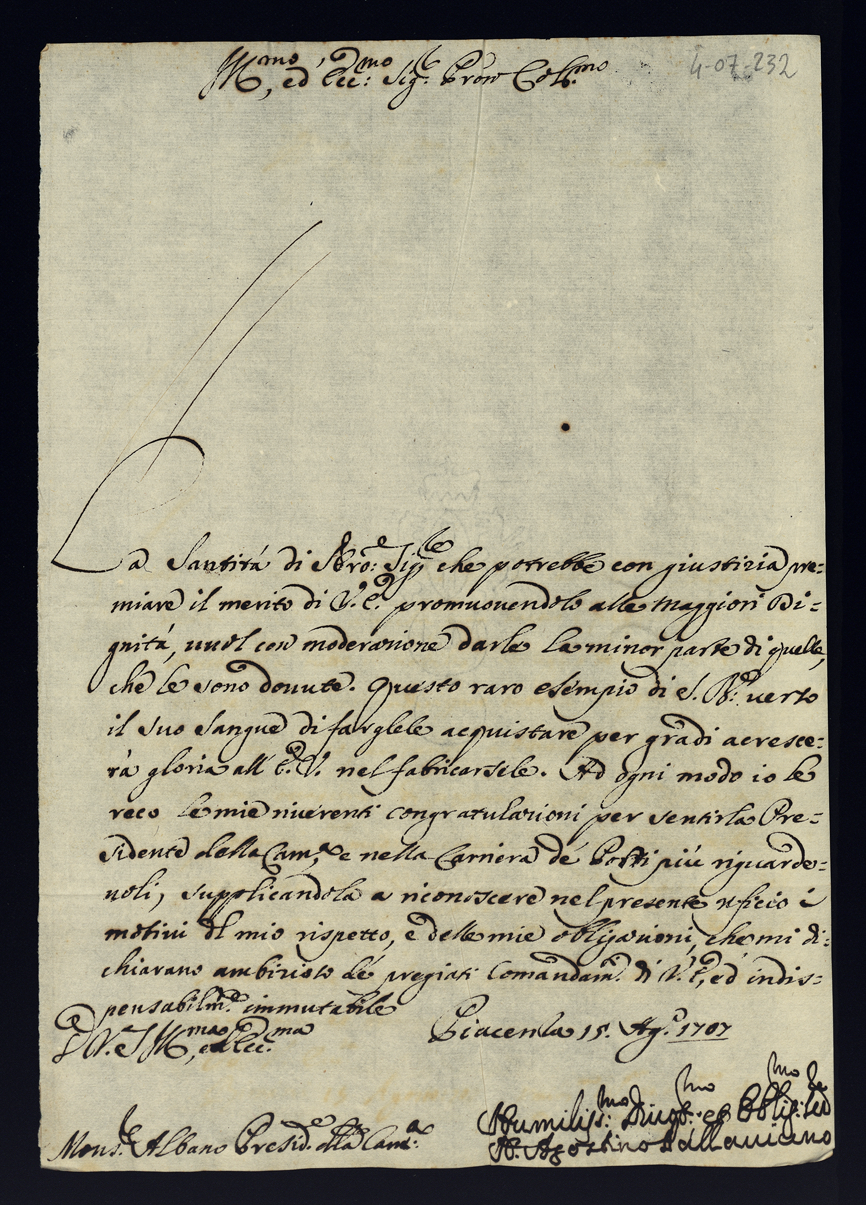 Ill.mo, ed Ecc.mo Sig.re Pron Col.mo
4-07-232
La Santità di Nro: Sig.re che potrebbe con giustizia pre=
miare il merito di V.E. promuovendolo alle maggiori Di=
gnità, vuol con moderazione darle la minor parte di quelle,
che le sono dovute. Questo raro esempio di S. B.e verso
il suo sangue di farglele acquistare per gradi acresce=
rà gloria all'E.V. nel fabricarsele. Ad ogni modo io le
reco le mie riverenti congratulazioni per sentirla Pre=
sidente della Cam.a, e nella Carriera de Posti più riguarde=
uoli, supplicandola a riconoscere nel presente uficio i
motiui del mio rispetto, e delle mie obligazioni, che mi di=
chiarano ambizioso de' pregiati Comandam.ti di V.E., ed indis=
pensabilm.te immutabile
D V.S Ill.ma, ed Ecc.ma
Piacenza 15. Ag.o 1707
Humiliss.mo Diuot.mo et Obblig.mo
Agostino Pallauicino
Mons.re Albano Presid.e della Cam.a